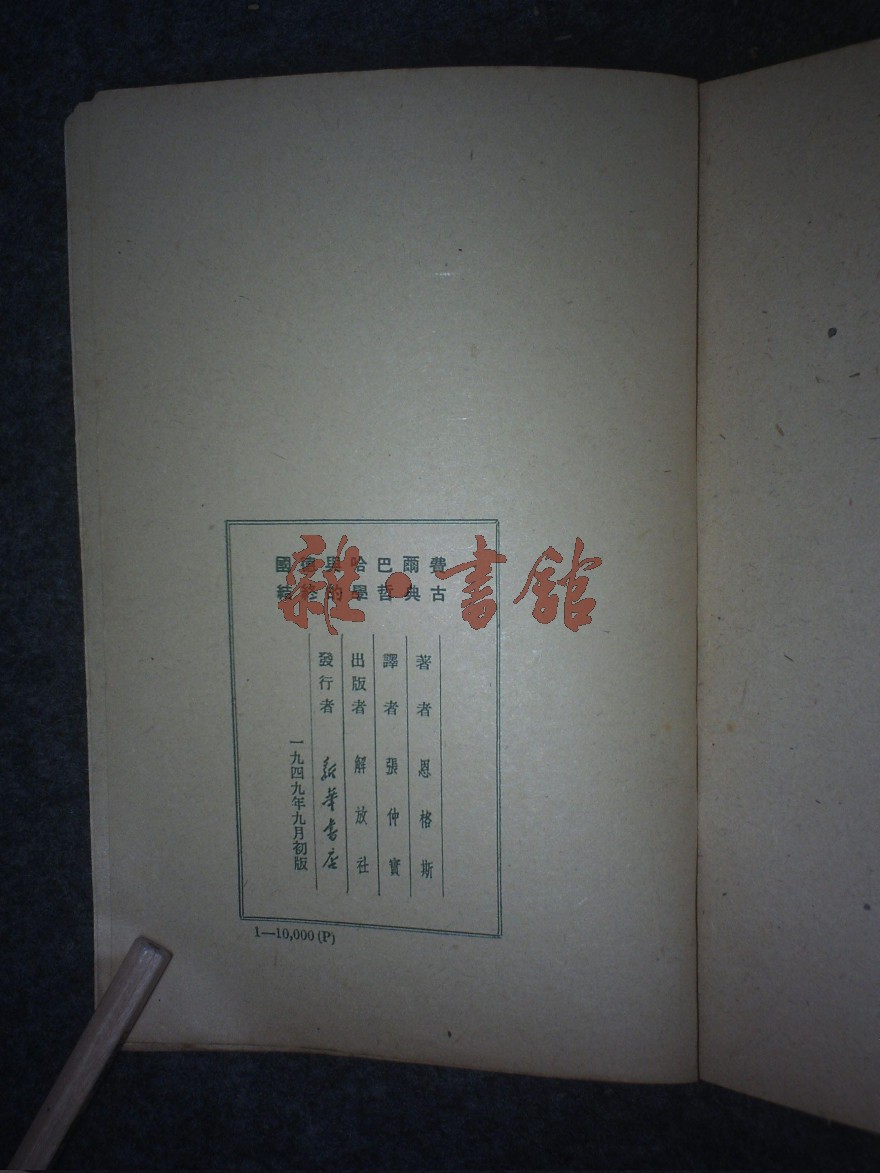 費爾巴哈與德國
古典哲學的終結
雜·書館
著者 恩格斯
譯者 張仲實
出版者 解放社
發行者 新華書店
一九四九年九月初版
1—10,000(P)